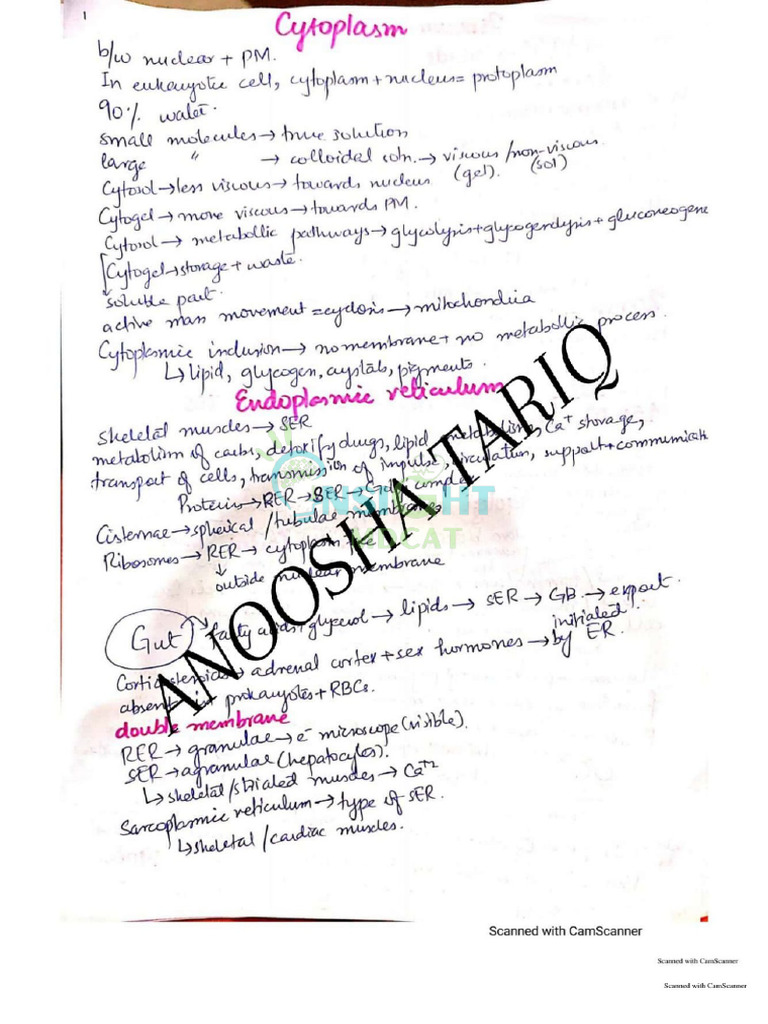 1
Cytoplasm
b/w nuclear + PM.
In eukaryotic cell, cytoplasm + nucleus = protoplasm
90% water.
small molecules → true solution
large " → colloidal soln. → viscous / non-viscous.
(gel). (sol)
Cytosol → less viscous → towards nucleus
Cytogel → more viscous → towards PM.
Cytosol → metabollic pathways → glycolysis + glycogenolysis + gluconeogene
Cytogel → storage + waste.
soluble part.
active mass movement = cyclosis → mitochondria
Cytoplasmic inclusion → no membrane + no metabollic process.
↳ lipid, glycogen, crystals, pigments.
Endoplasmic reticulum
Skeletal muscles → SER
metabolism of carbs, detoxify drugs, lipid metabolism, Ca⁺ storage,
transport of cells, transmission of impulse, circulation, support + communicati
Proteins → RER → SER → Golgi
Cisternae → spherical / tubular membranes
Ribosomes → RER → cytoplasm
↓
outside nuclear membrane
Gut → fatty acids + glycerol → lipids → SER → GB → export.
Corticosteroids → adrenal cortex + sex hormones → initiated by ER.
absent in prokaryotes + RBCs.
double membrane
RER → granular → e⁻ microscope (visible).
SER → agranular (hepatocytes).
↳ skeletal / striated muscles → Ca⁺²
Sarcoplasmic reticulum → type of SER.
↳ skeletal / cardiac muscles.
INSIGHT
MDCAT
ANOOSHA TARIQ
Scanned with CamScanner
Scanned with CamScanner
Scanned with CamScanner